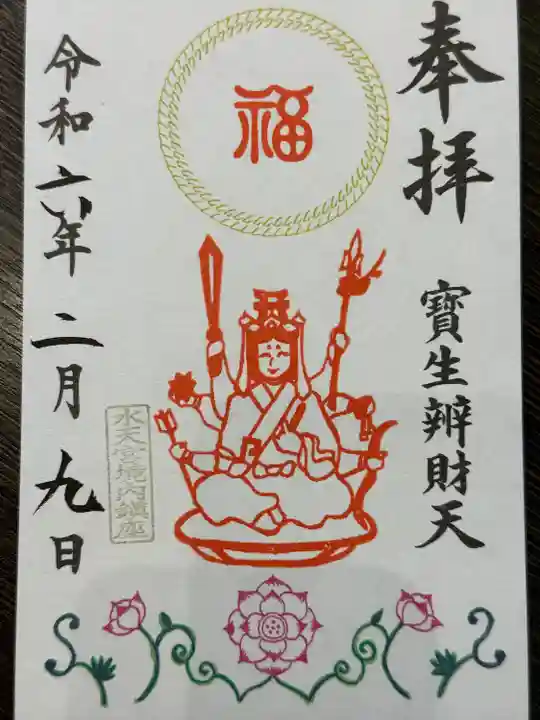 奉拝
寶生辨財天
福
水天宮境内鎮座
令和六年二月九日